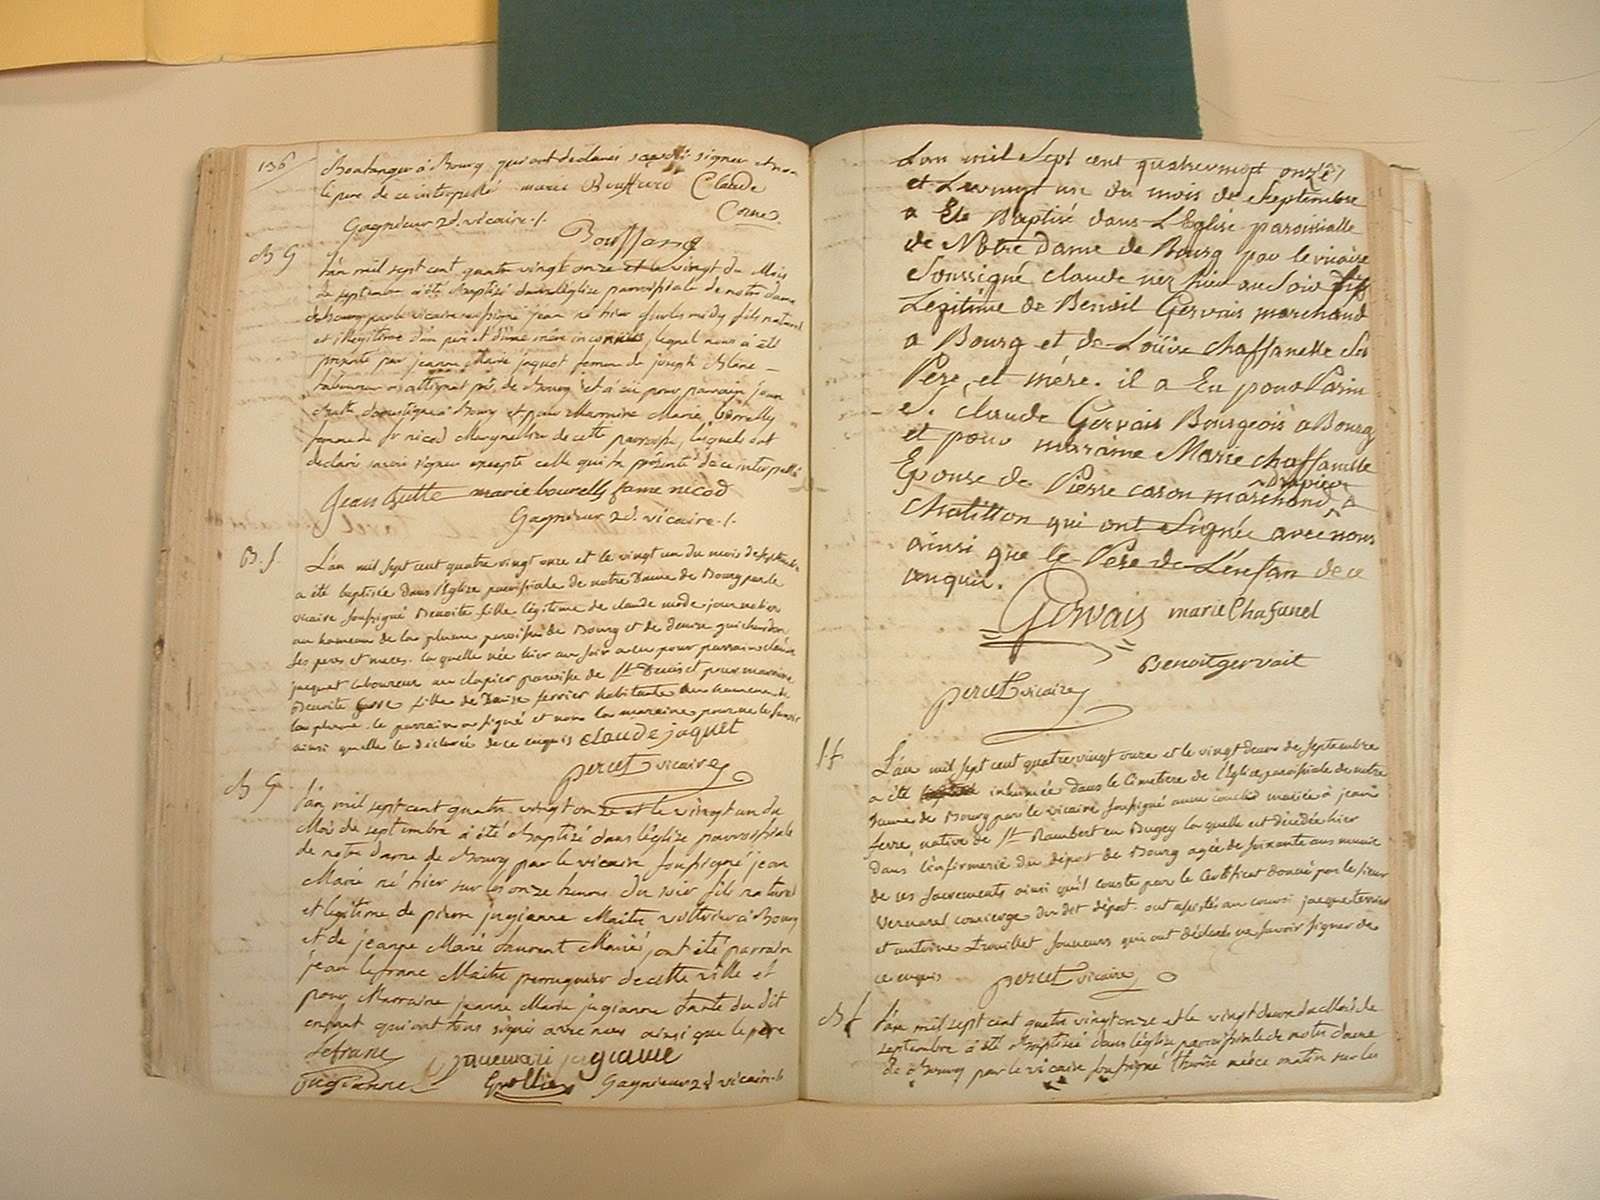 136
Boulanger à Bourg qui ont declarés savoir signer et non
le pere de ce interpellé marie Bouffard Claude
Corne
Gagnieur 2d. vicaire ./.
Bouffard
B G
l'an mil sept cent quatre vingt onze et le vingt du Mois
de septembre a été baptisé dans l'église parroissiale de notre dame
de bourg par le vicaire soussigné jean né hier sur les midy fils naturel
et illegitime d'un pere et d'une mère inconnus, lequel nous a été
presenté par jeanne Marie jaquot femme de joseph Blanc
laboureur de Bourg et a eu pour parrain jean
domestique à Bourg et pour Marraine Marie bourelly
femme de sr nicod de cette parroisse, lesquels ont
declaré savoir signer excepté celle qui l'a présenté de ce interpellé
Jean marie bourelly fame nicod
Gagnieur 2d. vicaire ./.
B. f.
L'an mil sept cent quatre vingt onze et le vingt un du mois de septembre
a été baptisée dans l'Eglise paroissiale de notre Dame de Bourg par le
vicaire soussigné Benoite fille légitime de claude mode journalier
au hameau de la plume paroisse de Bourg et de denise guichardon
ses peres et meres. laquelle née hier au soir a eu pour parrain claude
jaquet laboureur au clapier paroisse de St Denis et pour marraine
Benoite fille de Denise ferrier habitante au hameau de
la plume. le parrain a signé et non la marraine pour ne le savoir
ainsi qu'elle l'a déclarée de ce enquis claude jaquet
percet vicaire
B G
l'an mil sept cent quatre vingt onze et le vingt un du
Mois de septembre a été baptisé dans l'église parroissiale
de notre dame de Bourg par le vicaire soussigné jean
Marie né hier sur les onze heures du soir fils naturel
et légitime de pierre jugianne Maitre à Bourg
et de jeanne Marie laurent Mariés, ont été parrain
jean lefranc Maitre perruquier de cette ville et
pour Marraine jeanne Marie jugianne tante du dit
enfant qui ont tous signés avec nous ainsi que le pere
Lefranc jugianne
jugianne Grollier Gagnieur 2d vicaire ./.
Lan mil Sept cent quatrevingt onze
et Levingt une du mois de Septembre
a Eté Baptisé dans LEglise paroissialle
de Notre Dame de Bourg par le vicaire
Soussigné claude nez hier au Soir fils
Legitime de Benoit Gervais marchand
a Bourg et de Loüise chaffanelle Ses
Pere et mere. il a Eu pour Parin
S. claude Gervais Bourgeois a Bourg
et pour maraine Marie chaffanelle
Epouse de Pierre cason marchand drapier a
chatillon qui ont Signée avec nous
ainsi que le Pere de Lenfan de ce
anquis.
Gervais marie Chafanel
Benoit gervait
percet vicaire
L'an mil sept cent quatre vingt onze et le vingt deux de septembre
a été inhumée dans le Cimetiere de l'Eglise paroissiale de notre
Dame de Bourg par le vicaire soussigné anne mariée à jean
ferre, native de St Rambert en Bugey laquelle est décédée hier
dans l'infirmerie du dépot de Bourg agée de soixante ans munie
de ses sacrements ainsi qu'il conste par le Certificat donné par le sieur
Vernarel concierge du dit dépot. ont assistés au convoi jacque terrier
et antoine trouillet qui ont déclarés ne savoir signer de
ce enquis percet vicaire
B f
l'an mil sept cent quatre vingt onze et le vingt deux du Mois de
septembre a été baptisée dans l'église parroissiale de notre dame
de Bourg par le vicaire soussigné née ce matin sur les